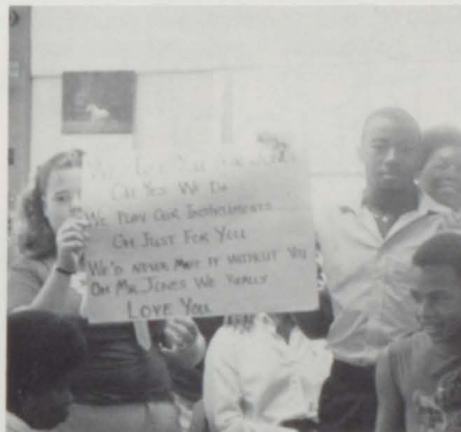 We Love You Mr. Jones
Oh Yes We Do
We Play Our Instruments
Oh Just For You
We'd never make it without You
Oh Mr. Jones We Really
Love You